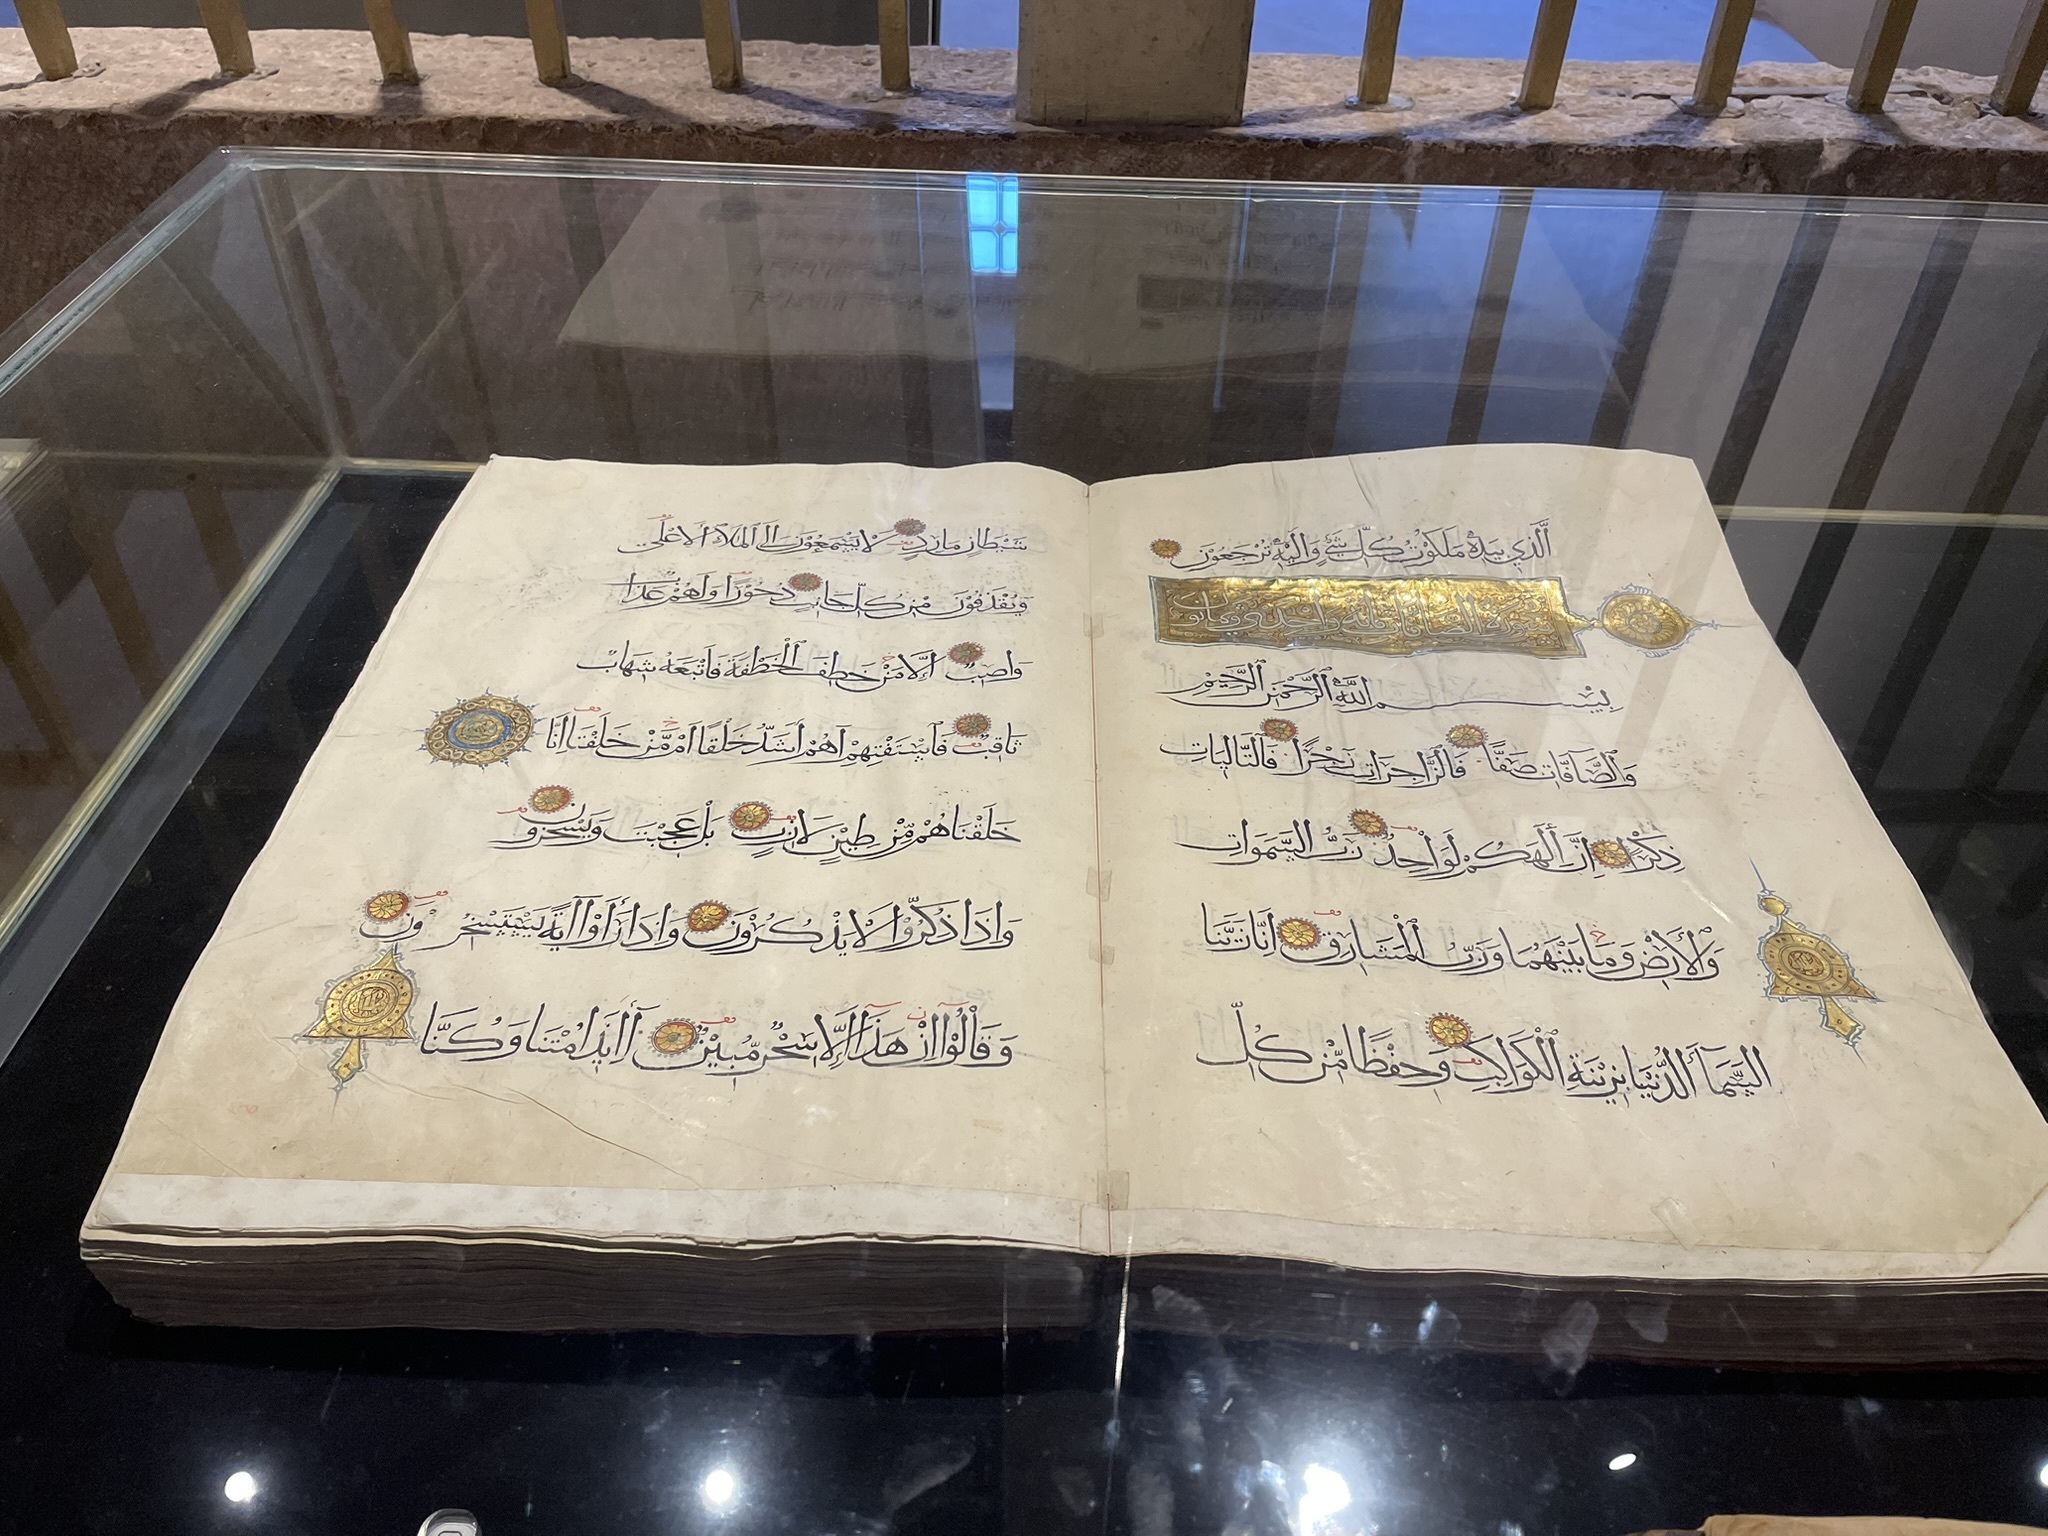 الَّذِي بِيَدِهِ مَلَكُوتُ كُلِّ شَيْءٍ وَإِلَيْهِ تُرْجَعُونَ
سورة الصافات مائة واحدى وثمانون
بِسْمِ اللَّهِ الرَّحْمَنِ الرَّحِيمِ
وَالصَّافَّاتِ صَفًّا فَالزَّاجِرَاتِ زَجْرًا فَالتَّالِيَاتِ
ذِكْرًا إِنَّ إِلَهَكُمْ لَوَاحِدٌ رَبُّ السَّمَوَاتِ
وَالْأَرْضِ وَمَا بَيْنَهُمَا وَرَبُّ الْمَشَارِقِ إِنَّا زَيَّنَّا
السَّمَاءَ الدُّنْيَا بِزِينَةٍ الْكَوَاكِبِ وَحِفْظًا مِّنْ كُلِّ
شَيْطَانٍ مَارِدٍ لَا يَسَّمَّعُونَ إِلَى الْمَلَإِ الْأَعْلَى
وَيُقْذَفُونَ مِنْ كُلِّ جَانِبٍ دُحُورًا وَلَهُمْ عَذَابٌ
وَاصِبٌ إِلَّا مَنْ خَطِفَ الْخَطْفَةَ فَأَتْبَعَهُ شِهَابٌ
ثَاقِبٌ فَاسْتَفْتِهِمْ أَهُمْ أَشَدُّ خَلْقًا أَم مَّنْ خَلَقْنَا إِنَّا
خَلَقْنَاهُمْ مِّنْ طِينٍ لَازِبٍ بَلْ عَجِبْتَ وَيَسْخَرُونَ
وَإِذَا ذُكِّرُوا لَا يَذْكُرُونَ وَإِذَا رَأَوْا آيَةً يَسْتَسْخِرُونَ
وَقَالُوا إِنْ هَذَا إِلَّا سِحْرٌ مُّبِينٌ أَإِذَا مِتْنَا وَكُنَّا